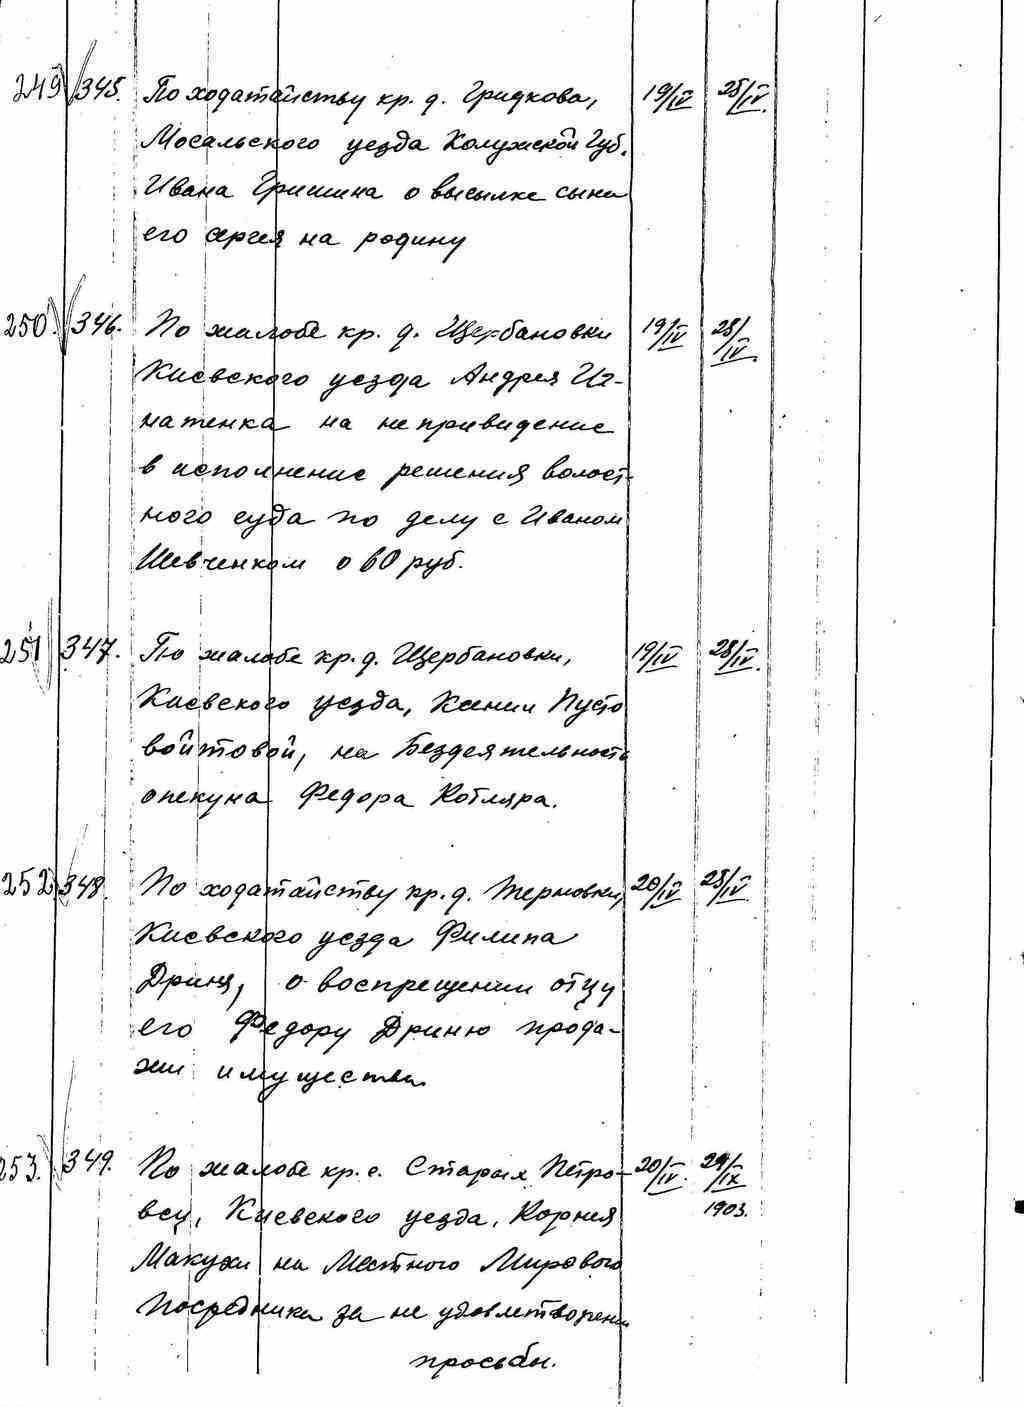 249 345. По ходатайству кр. д. Гридкова, 19/IV 28/IV.
Мосальского уезда Калужской Губ.
Ивана Гришина о высылке сына
его Сергея на родину
250. 346. По жалобе кр. д. Щербановки 19/IV 28/IV.
Киевского уезда Андрея Иг-
натенка на непривидение
в исполнение решения волост-
ного суда по делу с Иваном
Шевченком о 60 руб.
251 347. По жалобе кр. д. Щербановки, 19/IV 28/IV.
Киевского уезда, Ксении Пусто
войтовой, на бездеятельность
опекуна Федора Котляра.
252 348. По ходатайству кр. д. Терновки, 20/IV 28/IV.
Киевского уезда Филипа
Дриня, о воспрещении отцу
его Федору Дриню прода-
жи имущества
253. 349. По жалобе кр. с. Старых Петро- 20/IV. 29/IX
вец, Киевского уезда, Корнея 1903.
Макухи на Местного Мирового
Посредника за не удовлетворении
просьбы.